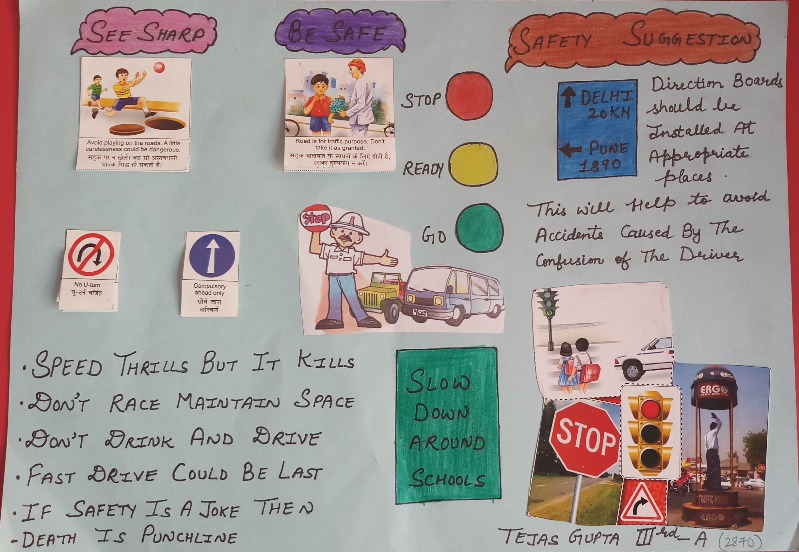 SEE SHARP
BE SAFE
SAFETY SUGGESTION
Avoid playing on the roads. A little
carelessness could be dangerous.
Road is for traffic purpose. Don't
take it as granted.
STOP
READY
GO
DELHI
20KM
PUNE
1890
Direction Boards
should be
Installed At
Appropriate
places.
This will Help to avoid
Accidents Caused By The
Confusion of The Driver
No U-turn
Compulsory
ahead only
Stop
SPEED THRILLS BUT IT KILLS
DON'T RACE MAINTAIN SPACE
DON'T DRINK AND DRIVE
FAST DRIVE COULD BE LAST
IF SAFETY IS A JOKE THEN
-DEATH IS PUNCHLINE
SLOW
DOWN
AROUND
SCHOOLS
STOP
ERGO
TRAFFIC POLICE
ERGO
TEJAS GUPTA IIIrd-A (2870)